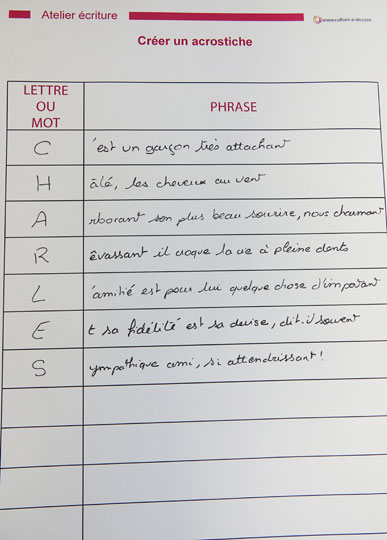 Atelier écriture
www.culture-a-vie.com
Créer un acrostiche
LETTRE OU MOT PHRASE
C 'est un garçon très attachant
H âlé, les cheveux au vent
A rborant son plus beau sourire, nous charmant
R êvassant il croque la vie à pleine dents
L 'amitié est pour lui quelque chose d'important
E t sa fidélité est sa devise, dit-il souvent
S ympathique ami, si attendrissant !